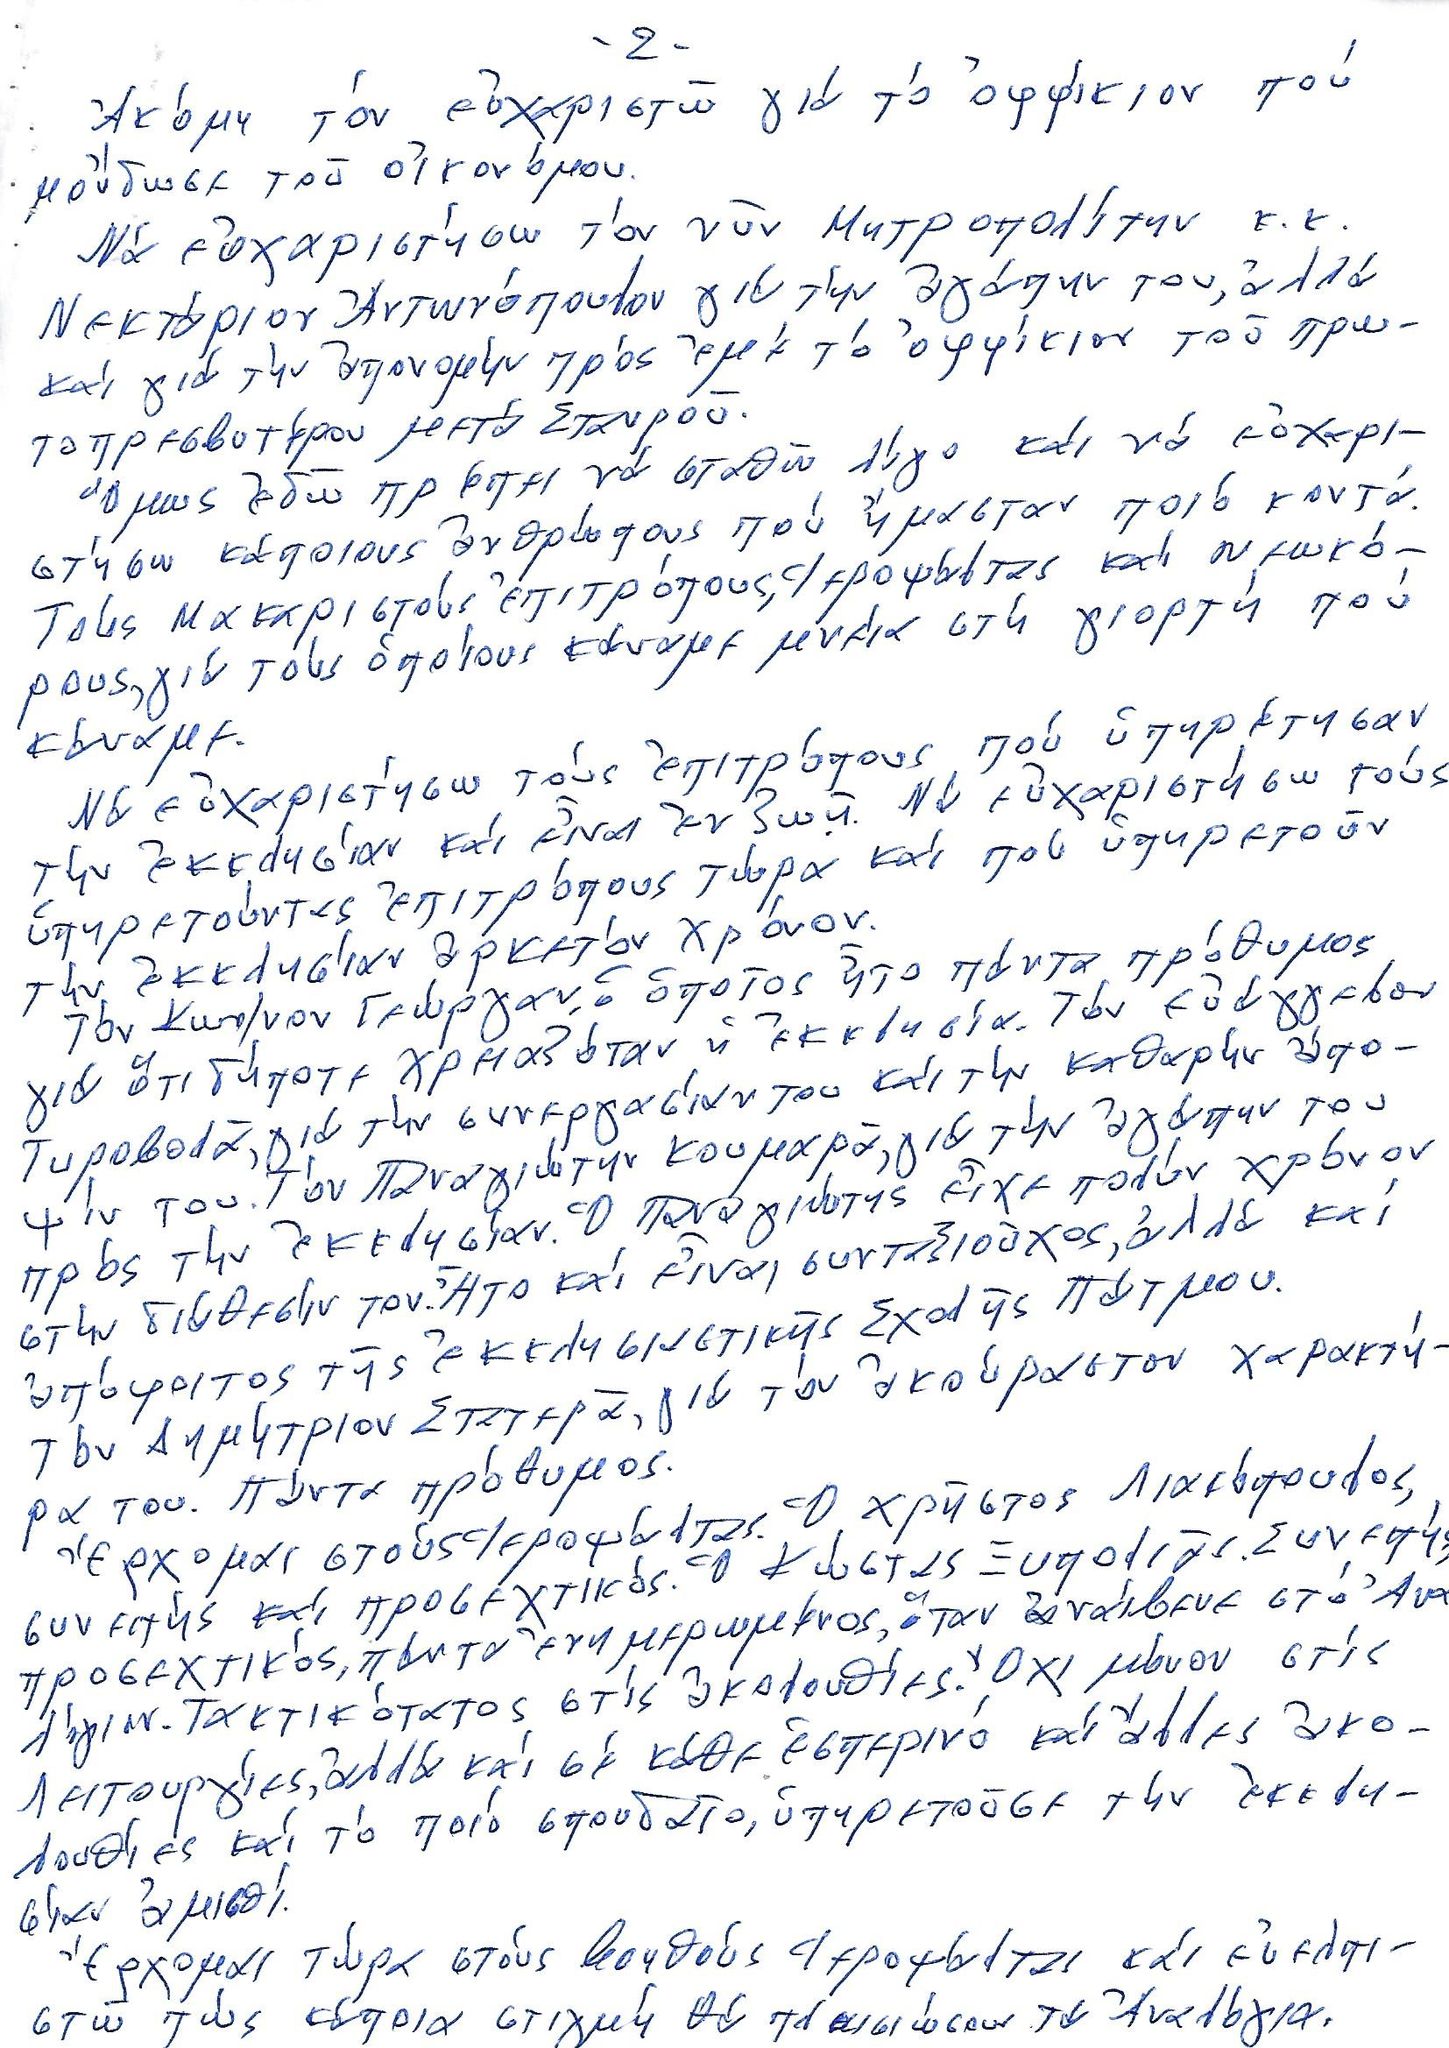 - 2 -
Ἀκόμη τόν εὐχαριστῶ γιά τό ὀφφίκιον πού
μοὔδωσε τοῦ οἰκονόμου.
Νά εὐχαριστήσω τόν νῦν Μητροπολίτην κ.κ.
Νεκτάριον Ἀντωνόπουλον γιά τήν ἀγάπην του, ἀλλά
καί γιά τήν ἀπονομήν πρός ἐμέ τό ὀφφίκιον τοῦ πρω-
τοπρεσβυτέρου μετά Σταυροῦ.
Ὅμως ἐδῶ πρέπει νά σταθῶ λίγο καί νά εὐχαρι-
στήσω κάποιους ἀνθρώπους πού ἤμασταν ποιό κοντά.
Τούς Μακαριστούς ἐπιτρόπους, Ἱεροψάλτας καί νεωκό-
ρους, γιά τούς ὁποίους κάναμε μνεία στή γιορτή πού
κάναμε.
Νά εὐχαριστήσω τούς ἐπιτρόπους πού ὑπηρέτησαν
τήν ἐκκλησίαν καί εἶναι ἐν ζωῇ. Νά εὐχαριστήσω τούς
ὑπηρετοῦντας ἐπιτρόπους τώρα καί πού ὑπηρετοῦν
τήν ἐκκλησίαν ἀρκετόν χρόνον.
Τόν Κων/νον Γεώργαν, ὁ ὁποῖος ἦτο πάντα πρόθυμος
γιά ὅτι δήποτε χρειαζόταν ἡ ἐκκλησία. Τόν εὐάγγελον
Τυροβολᾶ, γιά τήν συνεργασίαν του καί τήν καθαρήν ἄπο-
ψίν του. Τόν Παναγιώτην Κουμαρᾶ, γιά τήν ἀγάπην του
πρός τήν ἐκκλησίαν. Ὁ Παναγιώτης εἶχε πολύν χρόνον
στήν διάθεσίν του. Ἦτο καί εἶναι συνταξιοῦχος, ἀλλά καί
ἀπόφοιτος τῆς ἐκκλησιαστικῆς Σχολῆς Πάτμου.
Τόν Δημήτριον Στατερᾶ, γιά τόν ἀκούραστον χαρακτή-
ρα του. Πάντα πρόθυμος.
Ἔρχομαι στούς Ἱεροψάλτας. Ὁ Χρῆστος Λιακόπουλος,
συνεπής καί προσεχτικός. Ὁ Κώστας Ξυπολιᾶς. Συνεπής
προσεχτικός, πάντα ἐνημερωμένος, ὅταν ἀνέβενε στό Ἀνα
λόγιον. Τακτικότατος στίς ἀκολουθίες. Ὄχι μόνον στίς
Λειτουργίες, ἀλλά καί σέ κάθε ἑσπερινό καί ἄλλες ἀκο-
λουθίες καί τό ποιό σπουδαῖο, ὑπηρετοῦσε τήν ἐκκλη-
σίαν ἀμισθί.
Ἔρχομαι τώρα στούς βοηθούς Ἱεροψάλτας καί εὐελπι-
στῶ πώς κάποια στιγμή θά πλαισιώσουν τά Ἀναλόγια.